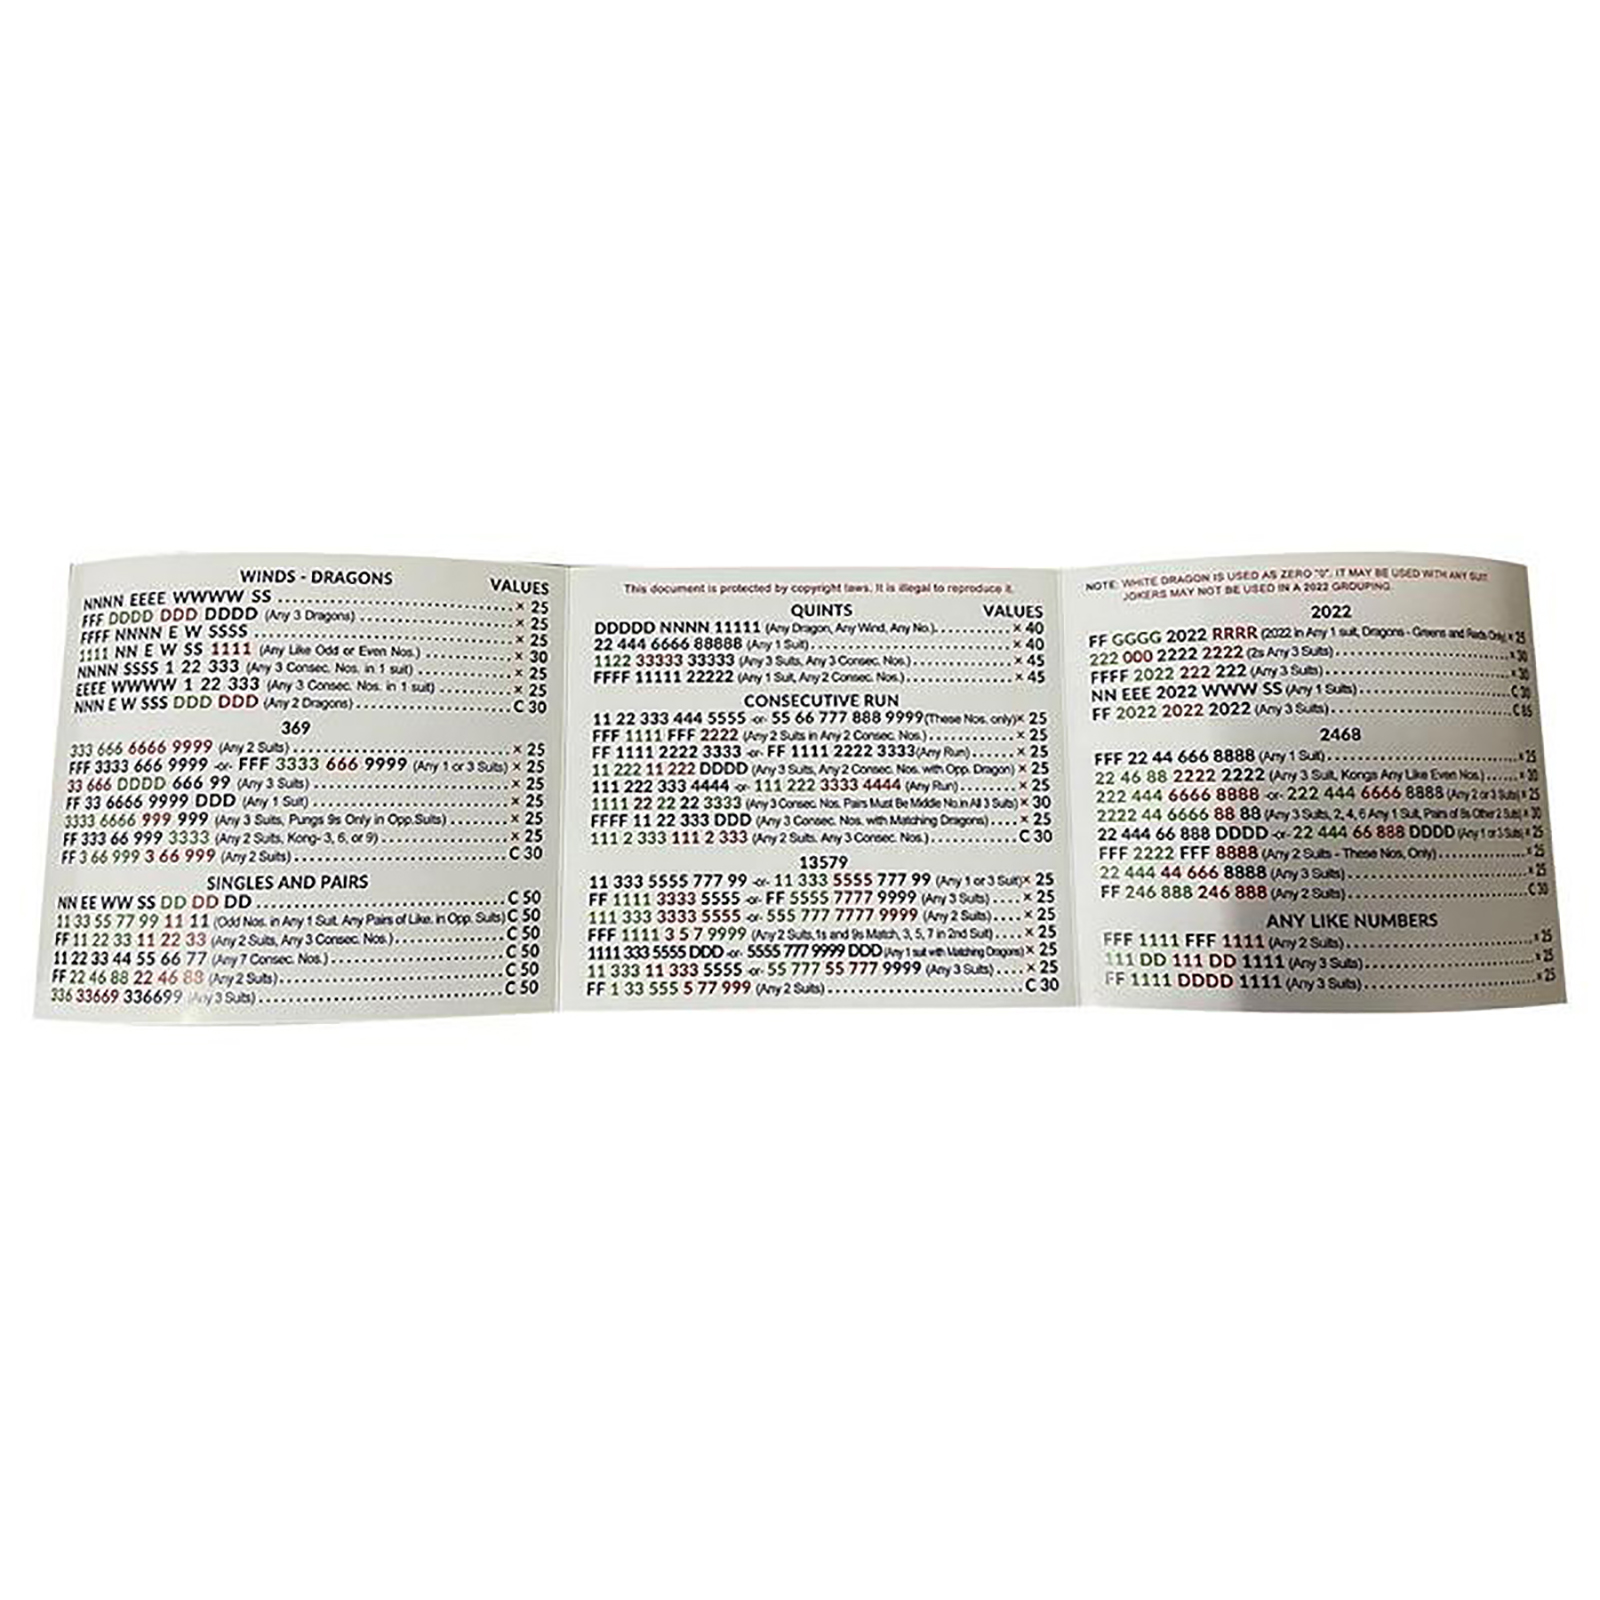 WINDS - DRAGONS
VALUES
NNNN EEEE WWWW SS × 25
FFF DDDD DDD DDDD (Any 3 Dragons) × 25
FFFF NNNN E W SSSS × 25
1111 NN E W SS 1111 (Any Like Odd or Even Nos.) × 30
NNNN SSSS 1 22 333 (Any 3 Consec. Nos. in 1 suit) × 25
EEEE WWWW 1 22 333 (Any 3 Consec. Nos. in 1 suit) × 25
NNN E W SSS DDD DDD (Any 2 Dragons) C 30
369
333 666 6666 9999 (Any 2 Suits) × 25
FFF 3333 666 9999 -or- FFF 3333 666 9999 (Any 1 or 3 Suits) × 25
33 666 DDDD 666 99 (Any 3 Suits) × 25
FF 33 6666 9999 DDD (Any 1 Suit) × 25
3333 6666 999 999 (Any 3 Suits, Pungs 9s Only in Opp.Suits) × 25
FF 333 66 999 3333 (Any 2 Suits, Kong- 3, 6, or 9) × 25
FF 3 66 999 3 66 999 (Any 2 Suits) C 30
SINGLES AND PAIRS
NN EE WW SS DD DD DD C 50
11 33 55 77 99 11 11 (Odd Nos. in Any 1 Suit. Any Pairs of Like. in Opp. Suits) C 50
FF 11 22 33 11 22 33 (Any 2 Suits, Any 3 Consec. Nos.) C 50
11 22 33 44 55 66 77 (Any 7 Consec. Nos.) C 50
FF 22 46 88 22 46 88 (Any 2 Suits) C 50
336 33669 336699 (Any 3 Suits) C 50
This document is protected by copyright laws. It is illegal to reproduce it.
QUINTS
VALUES
DDDDD NNNN 11111 (Any Dragon, Any Wind, Any No.) × 40
22 444 6666 88888 (Any 1 Suit) × 40
1122 33333 33333 (Any 3 Suits, Any 3 Consec. Nos.) × 45
FFFF 11111 22222 (Any 1 Suit, Any 2 Consec. Nos.) × 45
CONSECUTIVE RUN
11 22 333 444 5555 -or- 55 66 777 888 9999(These Nos. only)× 25
FFF 1111 FFF 2222 (Any 2 Suits in Any 2 Consec. Nos.) × 25
FF 1111 2222 3333 -or- FF 1111 2222 3333(Any Run) × 25
11 222 11 222 DDDD (Any 3 Suits, Any 2 Consec. Nos. with Opp. Dragon) × 25
111 222 333 4444 -or- 111 222 3333 4444 (Any Run) × 25
1111 22 22 22 3333 (Any 3 Consec. Nos. Pairs Must Be Middle No.in All 3 Suits) × 30
FFFF 11 22 333 DDD (Any 3 Consec. Nos. with Matching Dragons) × 25
111 2 333 111 2 333 (Any 2 Suits. Any 3 Consec. Nos.) C 30
13579
11 333 5555 777 99 -or- 11 333 5555 777 99 (Any 1 or 3 Suit)× 25
FF 1111 3333 5555 -or- FF 5555 7777 9999 (Any 3 Suits) × 25
111 333 3333 5555 -or- 555 777 7777 9999 (Any 2 Suits) × 25
FFF 1111 3 5 7 9999 (Any 2 Suits,1s and 9s Match, 3, 5, 7 in 2nd Suit) × 25
1111 333 5555 DDD -or- 5555 777 9999 DDD (Any 1 suit with Matching Dragons) × 25
11 333 11 333 5555 -or- 55 777 55 777 9999 (Any 3 Suits) × 25
FF 1 33 555 5 77 999 (Any 2 Suits) C 30
NOTE: WHITE DRAGON IS USED AS ZERO "0". IT MAY BE USED WITH ANY SUIT.
JOKERS MAY NOT BE USED IN A 2022 GROUPING.
2022
FF GGGG 2022 RRRR (2022 in Any 1 suit, Dragons - Greens and Reds Only) × 25
222 000 2222 2222 (2s Any 3 Suits) × 30
FFFF 2022 222 222 (Any 3 Suits) × 30
NN EEE 2022 WWW SS (Any 1 Suits) C 30
FF 2022 2022 2022 (Any 3 Suits) C 85
2468
FFF 22 44 666 8888 (Any 1 Suit) × 25
22 46 88 2222 2222 (Any 3 Suit, Kongs Any Like Even Nos.) × 30
222 444 6666 8888 -or- 222 444 6666 8888 (Any 2 or 3 Suits) × 25
2222 44 6666 88 88 (Any 3 Suits, 2, 4, 6 Any 1 Suit, Pairs of 8s Other 2 Suits) × 30
22 444 66 888 DDDD -or- 22 444 66 888 DDDD (Any 1 or 3 Suits) × 25
FFF 2222 FFF 8888 (Any 2 Suits - These Nos, Only) × 25
22 444 44 666 8888 (Any 3 Suits) × 25
FF 246 888 246 888 (Any 2 Suits) C 30
ANY LIKE NUMBERS
FFF 1111 FFF 1111 (Any 2 Suits) × 25
111 DD 111 DD 1111 (Any 3 Suits) × 25
FF 1111 DDDD 1111 (Any 3 Suits) × 25